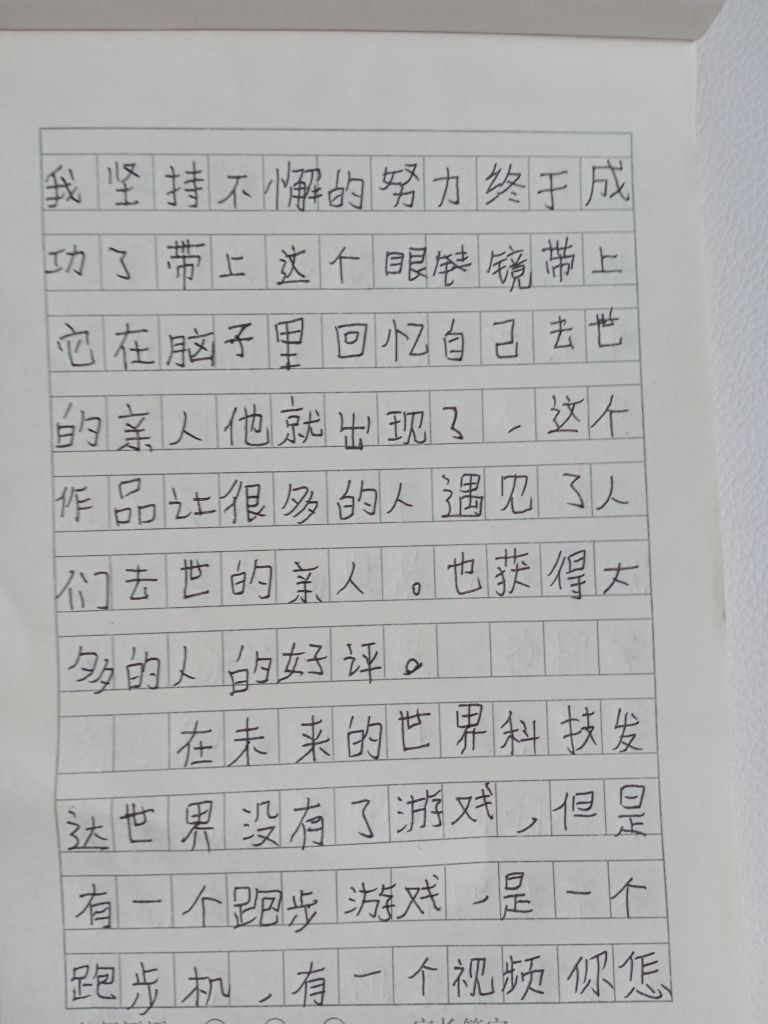 我坚持不懈的努力终于成
功了带上这个眼镜带上
它在脑子里回忆自己去世
的亲人他就出现了，这个
作品让很多的人遇见了人
们去世的亲人。也获得大
多的人的好评。
在未来的世界科技发
达世界没有了游戏，但是
有一个跑步游戏，是一个
跑步机，有一个视频你怎